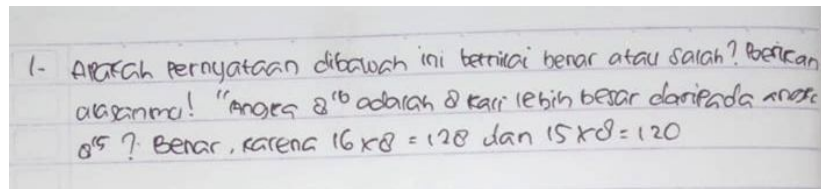 1- Apakah pernyataan dibawah ini bernilai benar atau salah? Berikan
alasanmu! "Angka 8¹⁶ adalah 8 kali lebih besar daripada angka
8¹⁵ ? Benar, karena 16 x 8 = 128 dan 15 x 8 = 120